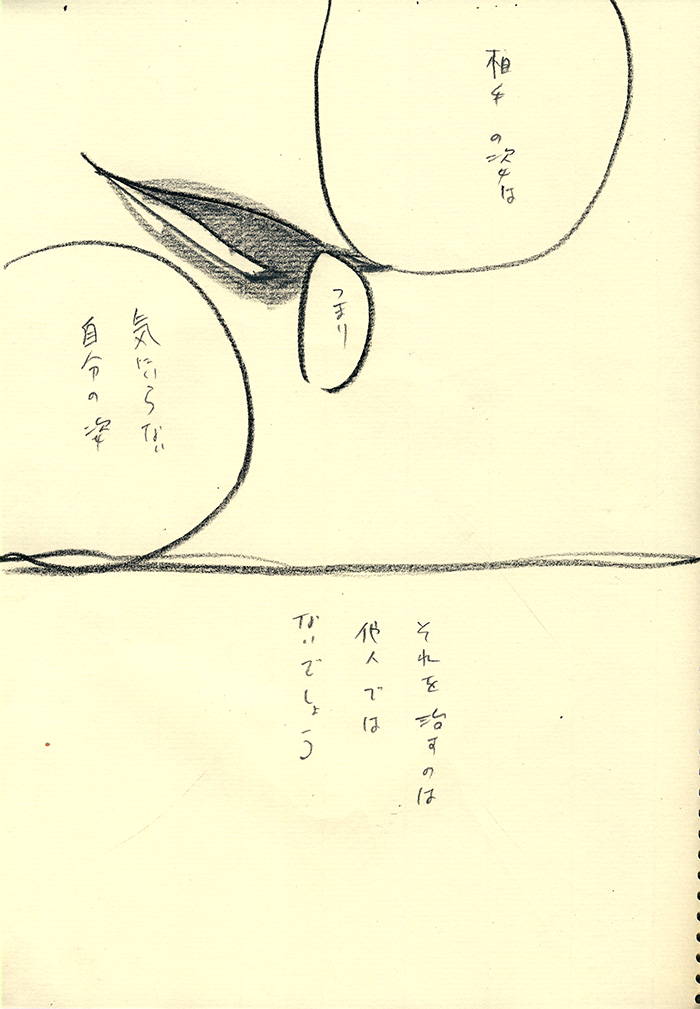 相手の姿は
つまり
気にいらない
自分の姿
それを治すのは
他人では
ないでしょう